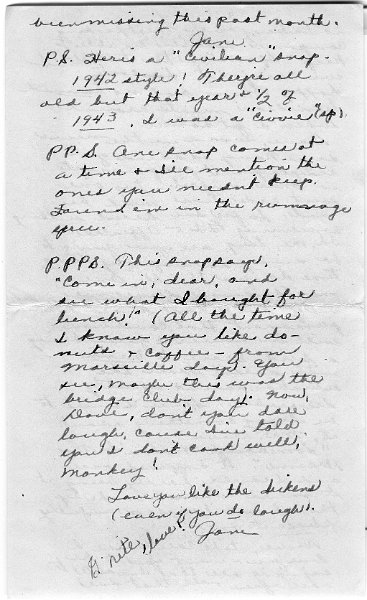 been missing this past month.
Jane
P.S. Here's a "Civilian" snap.
1942 style! They're all
old but that year & 1/2 of
1943, I was a "civvie" (sp).
P.P.S. One snap comes at
a time & I'll mention the
ones you needn't keep.
Found 'em in the rummage
you.
P.P.P.S. This snap says,
"Come in, dear, and
see what I bought for
lunch!" (All the time
I know you like do-
nuts & coffee - from
Marseille days. You
see, maybe this was the
bridge club day). Now,
Dave, don't you dare
laugh, cause I've told
you I don't cook well,
Monkey!
Love you like the dickens
(even if you do laugh).
Jane
G'nite, love!